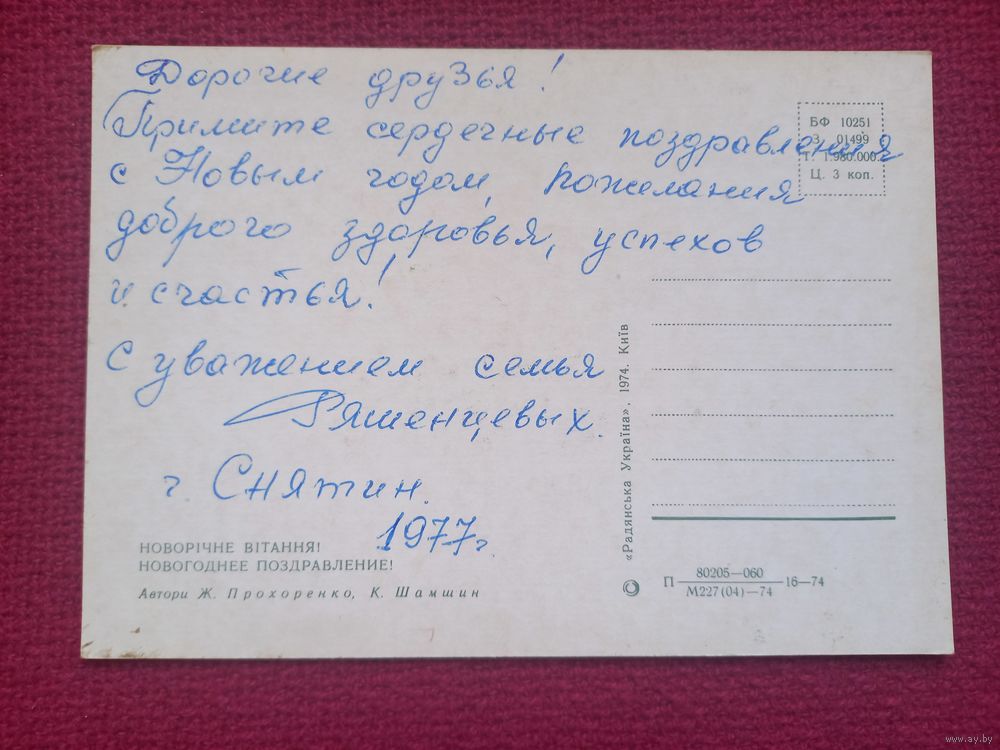 Дорогие друзья!
Примите сердечные поздравления
с Новым годом, пожелания
доброго здоровья, успехов
и счастья!
С уважением семья
Ряшенцевых.
г. Снятин.
1977г.
НОВОРІЧНЕ ВІТАННЯ!
НОВОГОДНЕЕ ПОЗДРАВЛЕНИЕ!
Автори Ж. Прохоренко, К. Шамшин
БФ 10251
З. 01499
Т. 1.980.000.
Ц. 3 коп.
© «Радянська Україна», 1974. Київ
П 80205—060 16—74
М227(04)—74
www.ay.by